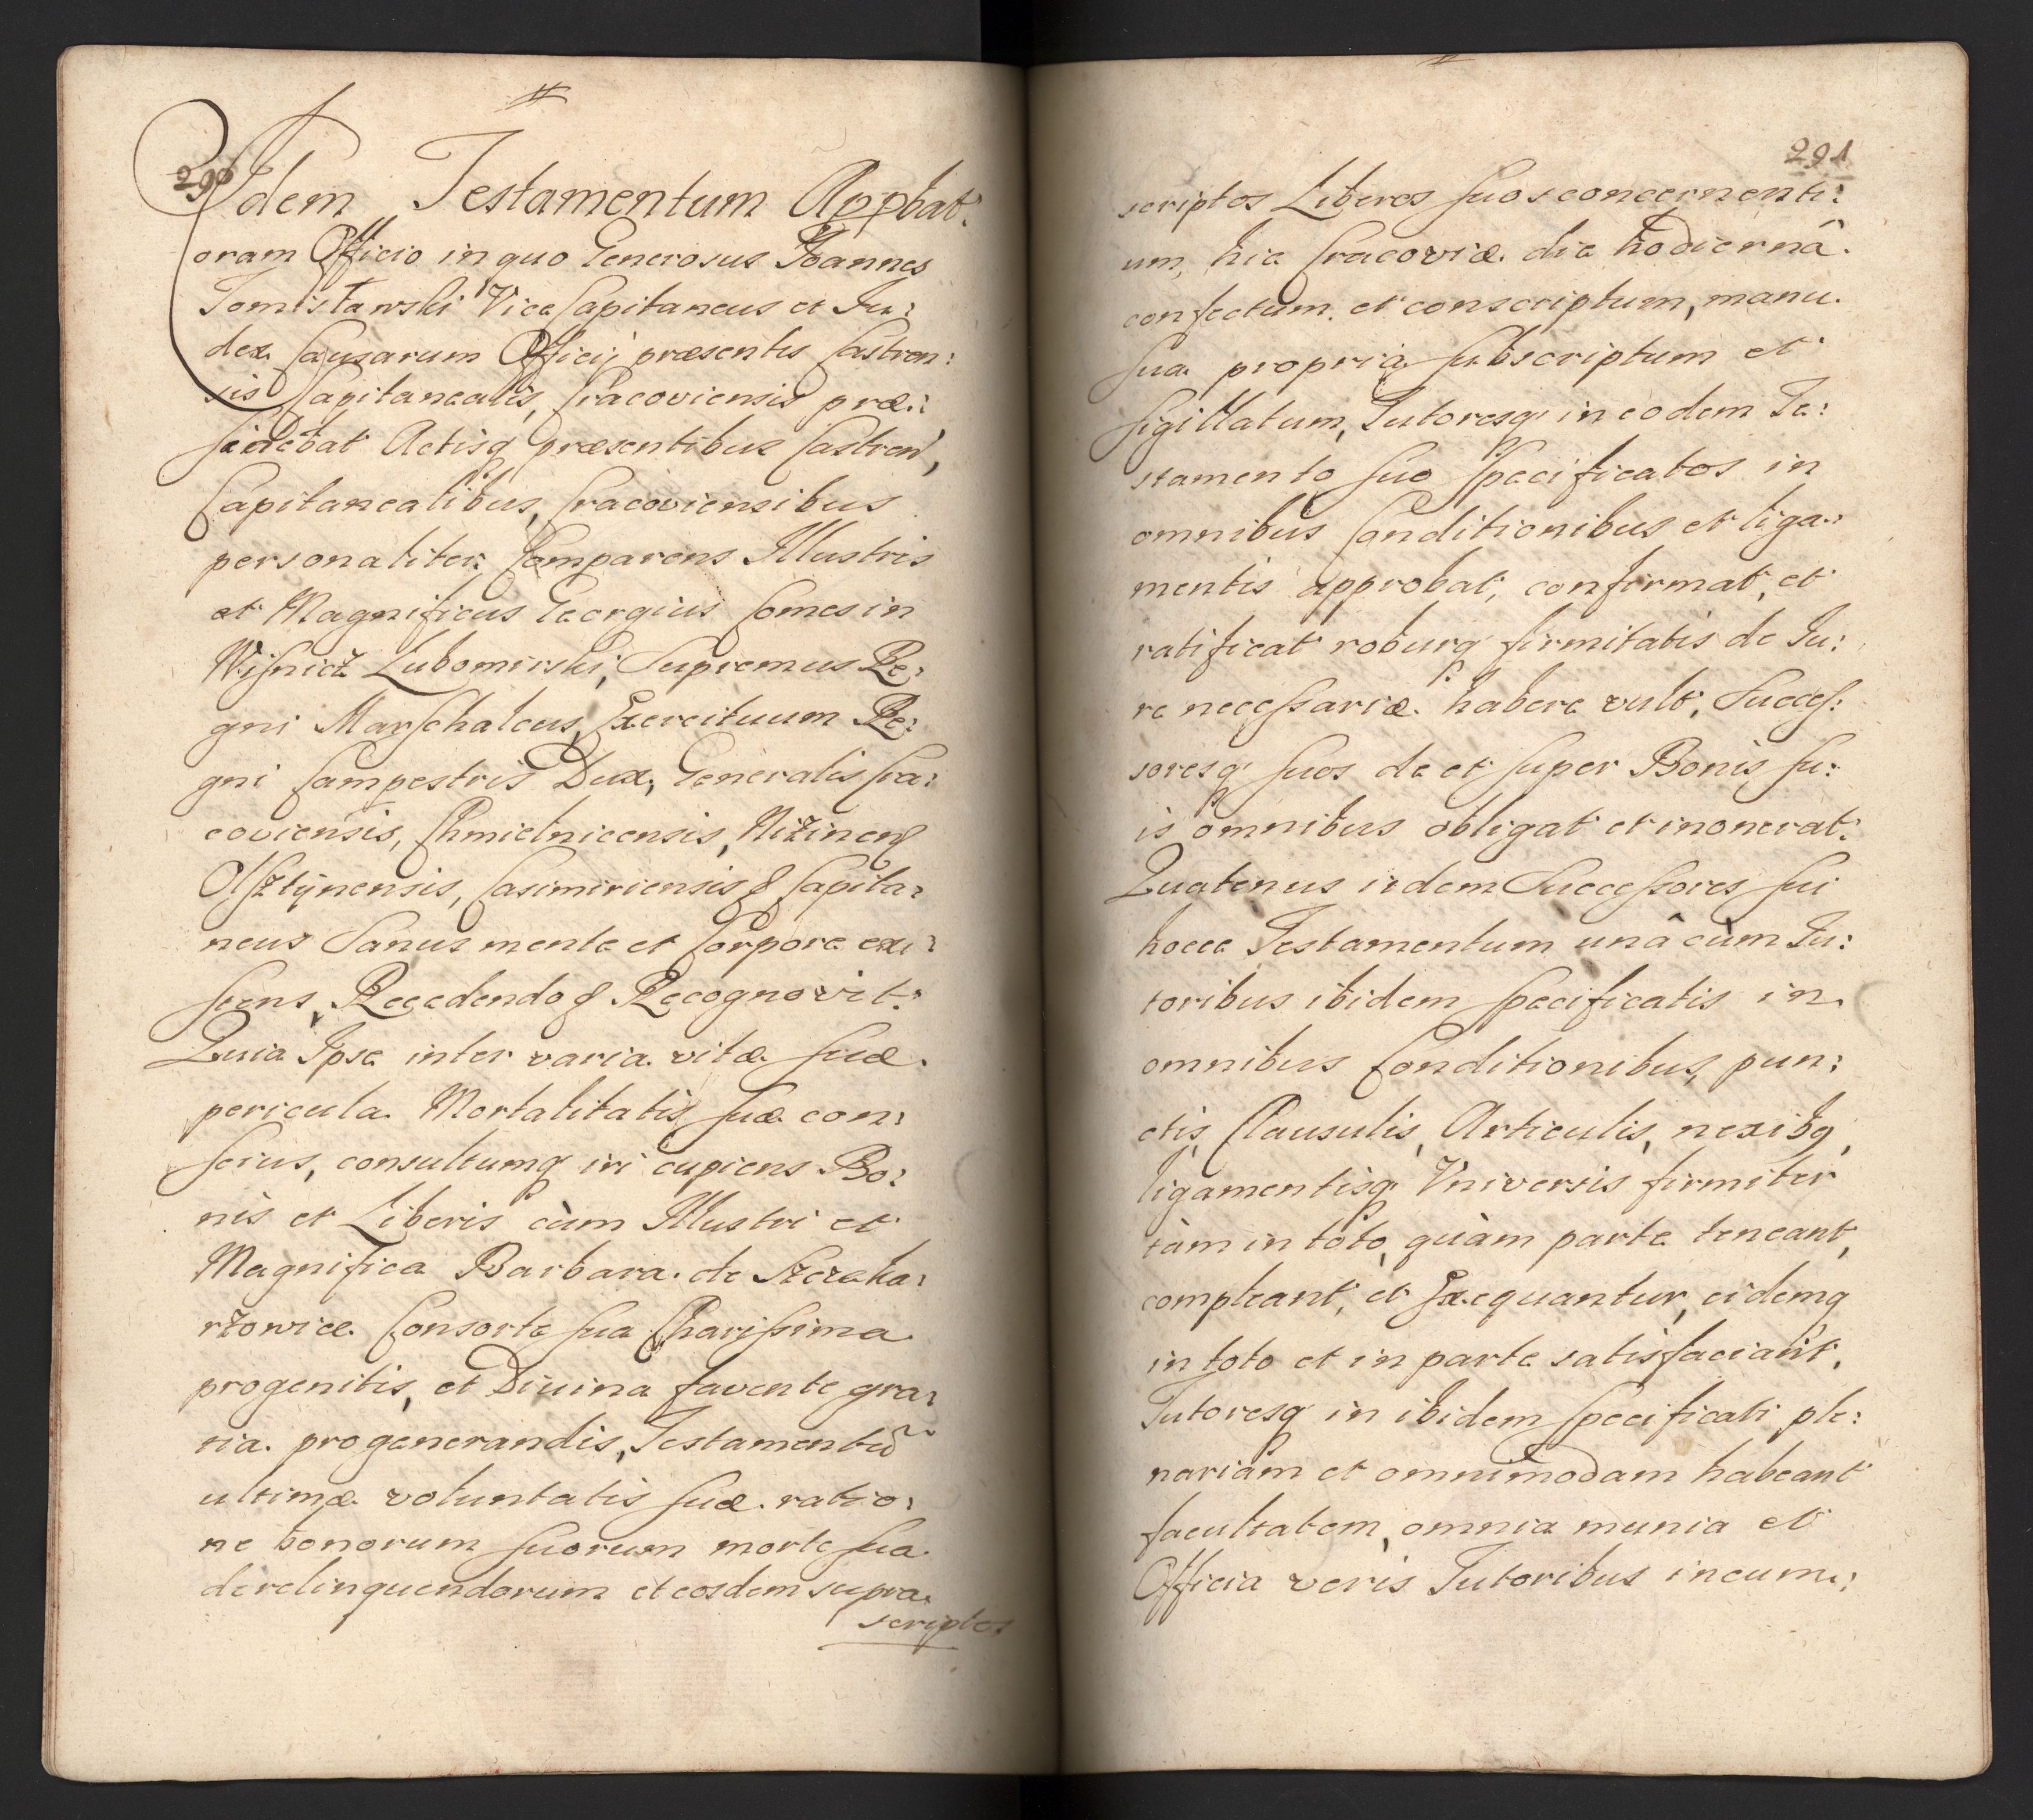 290
Idem Testamentum Appbat:
oram Officio in quo Generosus Joannes
Tomisławski Vice Capitaneus et Ju:
dex Causarum Officij præsentis Castren:
sis Capitanealis, Cracoviensis præ:
sidebat Actisq præsentibus Castren,
Capitanealibus, Cracoviensibus
personaliter Comparens Illustris
et Magnificus Georgius Comes in
Wisnicz Lubomirski, Supremus Re:
gni Marschalcus, Exercituum Re:
gni Campestris Dux, Generalis Cra:
coviensis, Chmielnicensis, Niżinen
Olsztÿnensis, Casimiriensis & Capita:
neus Sanus mente et Corpore exi:
stens, Recedendo & Recognovit:
Quia Ipse inter varia vitæ suæ
pericula Mortalitatis suæ con:
scius, consultumq iri cupiens Bo:
nis et Liberis cùm Illustri et
Magnifica Barbara de Szczeka:
rzowice Consorte sua Charissima
progenitis, et Diuina favente gra:
tia progenerandis, Testamentũ
ultimæ voluntatis suæ ratio:
ne bonorum suorum morte sua
derelinquendorum et eosdem supra
scriptos
291
scriptos Liberos suos concernenti:
um, hic Cracoviæ die hodiernâ
confectum et conscriptum, manu
sua propria subscriptum et
sigillatum, Tutoresq in eodem Te:
stamento suo specificatos in
omnibus Conditionibus et liga:
mentis approbat, confirmat, et
ratificat roburq firmitatis de Ju:
re necessariæ habere vult, Succes:
soresq suos de et super Bonis su:
is omnibus obligat et inonerat:
Quatenus iidem Successores sui
hocce Testamentum unâ cùm Tu:
toribus ibidem specificatis in
omnibus Conditionibus, pun:
ctis, Clausulis, Articulis, nexibq,
ligamentisq Vniversis firmiter
tàm in toto, quàm parte teneant,
compleant, et Exequantur, eidemq
in toto et in parte satisfaciant,
Tutoresq in ibidem specificati ple:
nariam et omnimodam habeant
facultatem, omnia munia et
Officia veris Tutoribus incum: